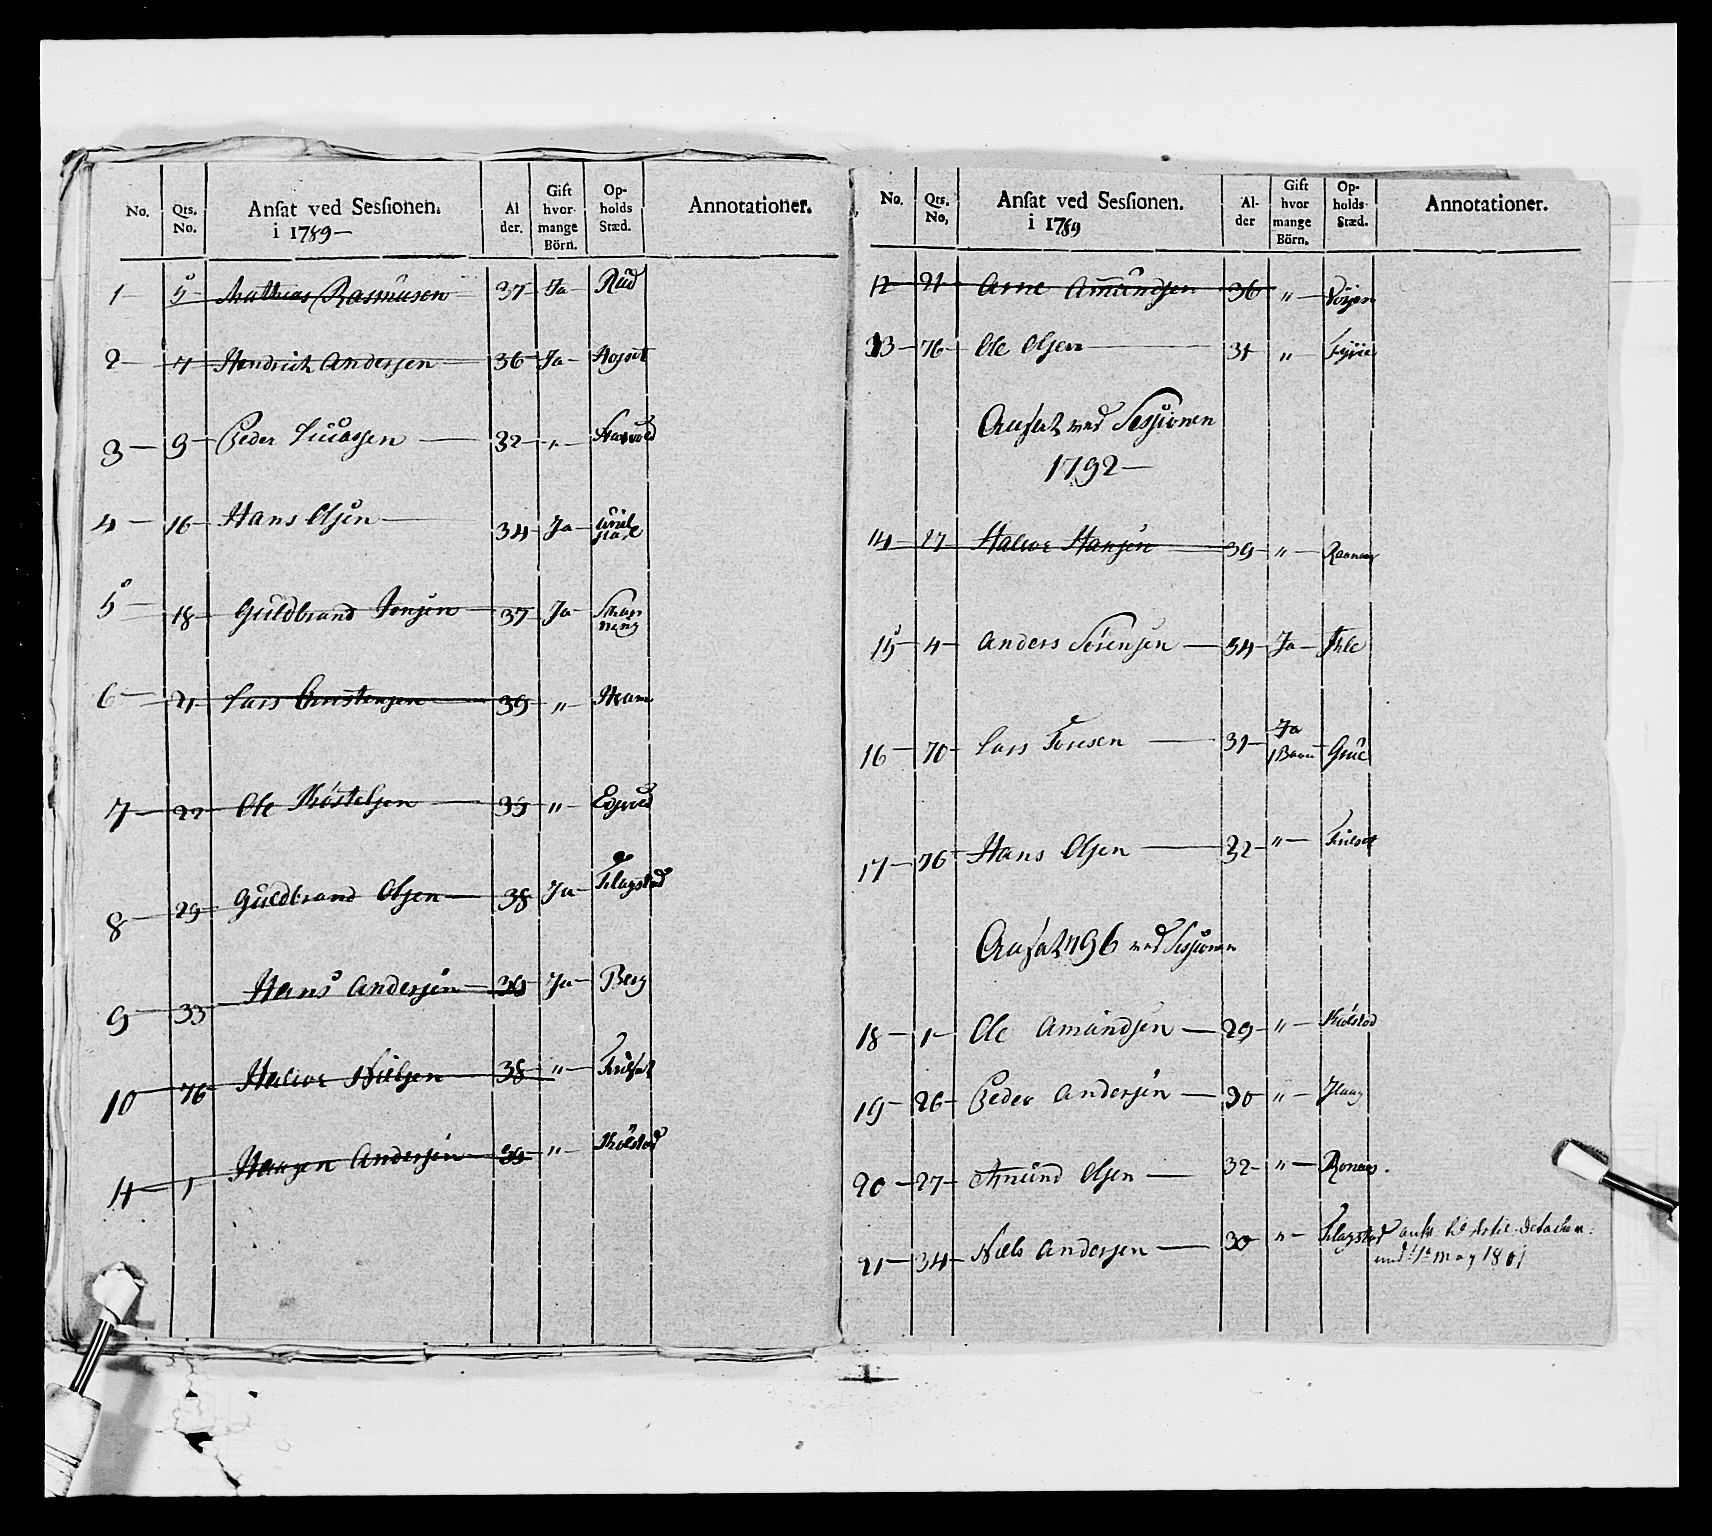 No. Qts. No. Ansat ved Sessionen. i 1789 Al der. Gift hvor mange Börn. Op- holds Stæd. Annotationer.
1 5 Mathias Rasmusen 37 Ja Rud
2 7 Hendrich Andersen 36 Ja
3 9 Peder 32 "
4 16 Hans Olsen 34 Ja
5 18 Guldbrand Jensen 37 Ja
6 21 Lars Christensen 39 "
7 22 Ole 39 "
8 29 Guldbrand Olsen 38 Ja Flagstad
9 33 Hans Andersen 36 Ja Berg
10 76 Halvor Nielsen 38 " Frilset
11 1 Haagen Andersen 39 " Kiölstad
No. Qts. No, Ansat ved Sessionen. i 1789 Al- der Gift hvor mange Börn. Op- holds- Stæd. Annotationer.
12 21 Arne Amundsen 36 "
13 76 Ole Olsen 31 "
Ansat ved Sessionen
1792
14 27 Halvor Hansen 39 "
15 4 Anders Sörensen 34 Ja
16 70 Lars Toresen 31 Ja 1 Barn Grue
17 76 Hans Olsen 32 " Frilset
Ansat 1796 ved Sessionen
18 1 Ole Amundsen 29 " Kiölstad
19 26 Peder Andersen 30 " Haag
20 27 Amund Olsen 32 "
21 34 Niels Andersen 30 " Flagstad
May 1801